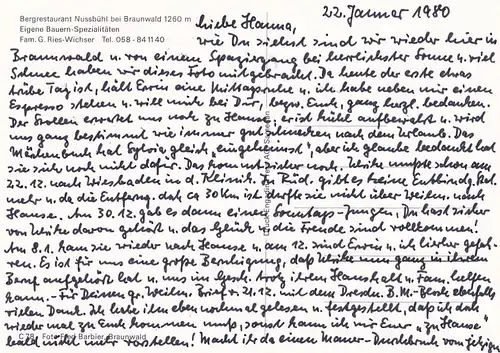 Bergrestaurant Nussbühl bei Braunwald 1260 m
Eigene Bauern-Spezialitäten
Fam. G. Ries-Wichser Tel. 058 - 84 11 40
22. Januar 1980
Liebe Hanna,
wie Du siehst sind wir wieder hier in
Braunwald u. von einem Spaziergang bei herrlichster Sonne u. viel
Schnee haben wir dieses Foto mitgebracht. Da heute der erste etwas
trübe Tag ist, hält Erwin eine Mittagsruhe u. ich habe neben mir einen
Espresso stehen u. will mich bei Dir, bezw. Euch, ganz herzl. bedanken.
Der Stollen erwartet uns noch zu Hause, erist kühl aufbewahrt u. wird
uns ganz bestimmt wie immer gut schmecken nach dem Urlaub. Das
Märchenbuch hat Sylvia gleich "eingeheimst", aber ich glaube bedankt hat
sie sich noch nicht dafür. Das kommt sicher noch. Ulrike mußte schon am
22.12. nach Wiesbaden in d. Klinik. In Rüd. gibt es keine Entbindg. Stat.
mehr u. da die Entferng. doch ca 30 Km ist durfte sie nicht über Weihn. nach
Hause. Am 30.12. gab es dann einen Sonntags-Jungen. Du hast sicher
von Ulrike davon gehört u. das Glück u. die Freude sind vollkommen!
Am 8.1. kam sie wieder nach Hause u. am 12. sind Erwin u. ich hierher gefah-
ren. Es ist für uns eine große Beruhigung, daß Ulrike nun ganz in ihrem
Beruf aufgehört hat u. uns im Gesch. trotz ihrem Haushalt u. Fam. helfen
kann. - Für Deinen gr. Weihn. Brief v. 21.12. mit dem Dresdn. B.M.-Block ebenfalls
vielen Dank. Ich habe ihn eben nochmal gelesen u. festgestellt, daß ich doch
wieder mal zu Euch kommen muß, sonst kann ich mir Euer "zu Hause"
bald nicht mehr vorstellen! Macht ihr da einen Mauer-Durchbruch vom jetzigen
C 78 Foto Fred Barbier, Braunwald